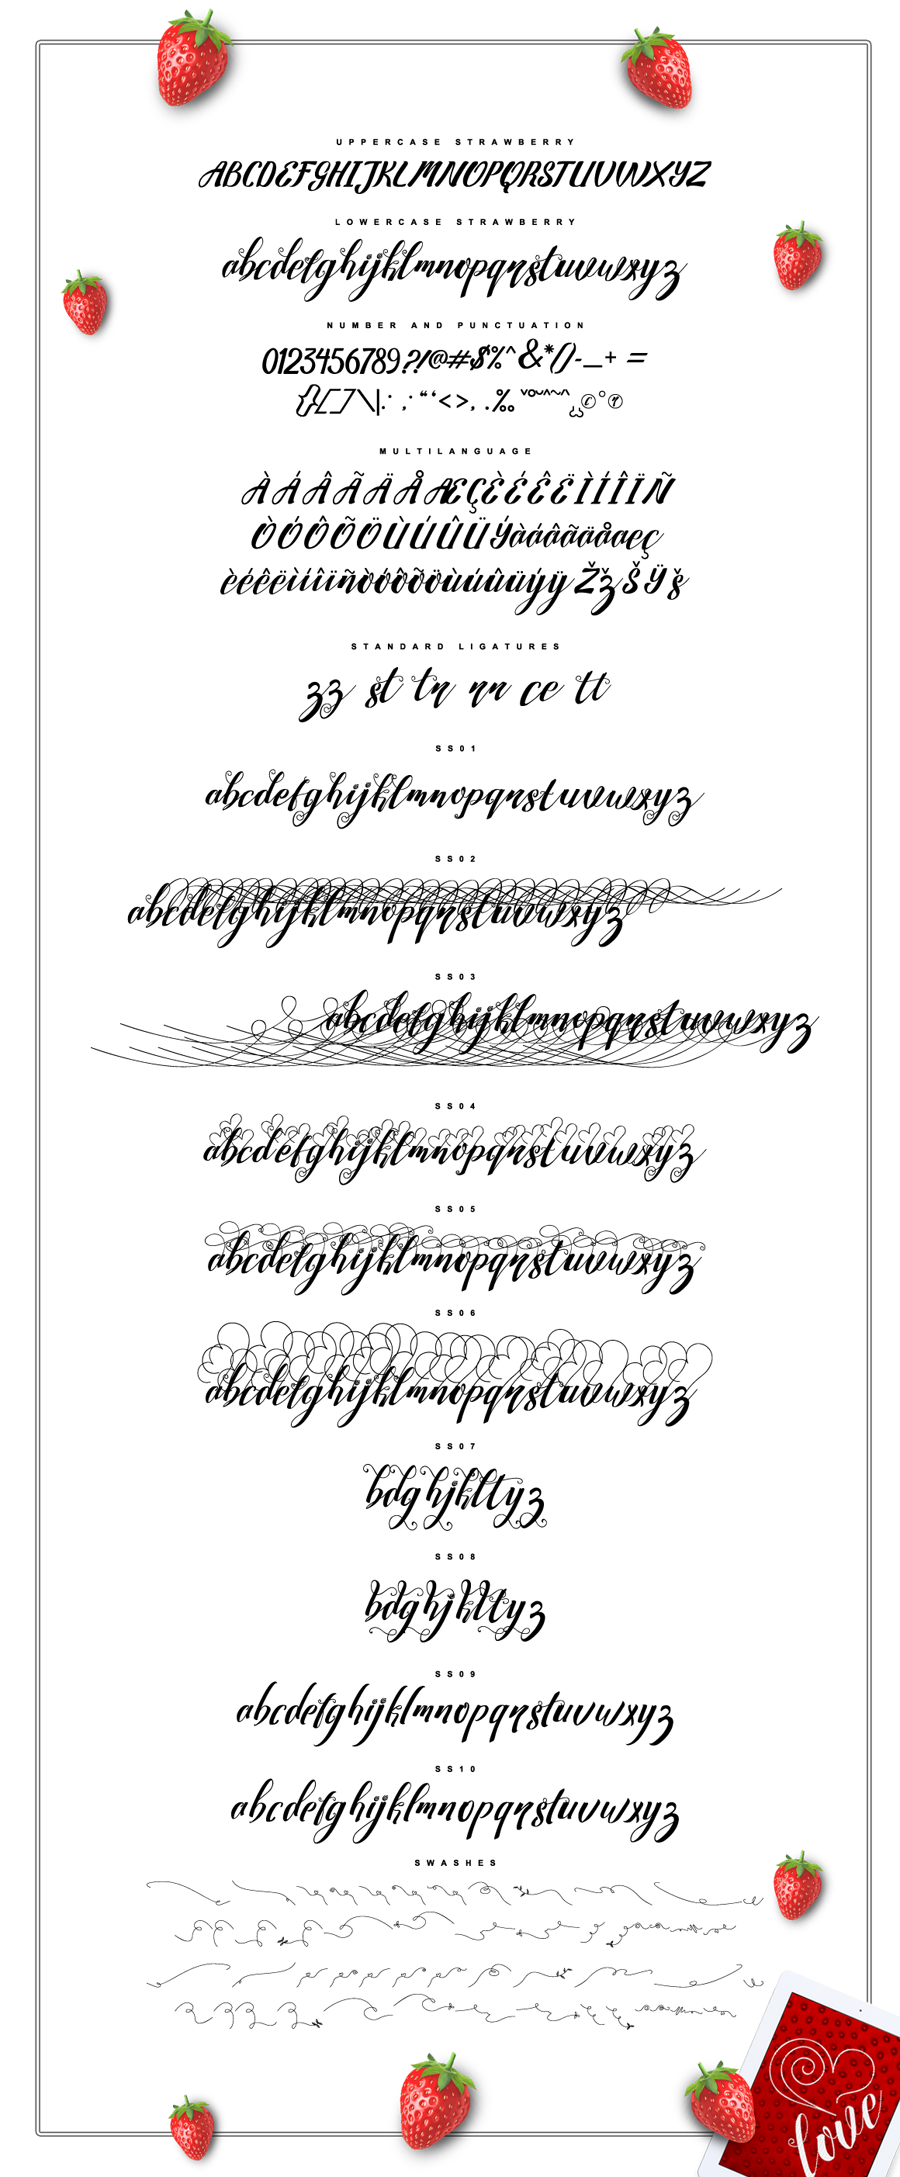 UPPERCASE STRAWBERRY
ABCDEFGHIJKLMNOPQRSTUVWXYZ
LOWERCASE STRAWBERRY
abcdefghijklmnopqrstuvwxyz
NUMBER AND PUNCTUATION
0123456789?!@#$%^&*()-_+ =
{}[]\|:
MULTILANGUAGE
ÀÁÂÃÄÅÆÇÈÉÊËÌÍÎÏÑ
ÒÓÔÕÖÙÚÛÜÝàáâãäåæç
èéêëìíîïñòóôõöùúûüýÿŽžŠŸš
STANDARD LIGATURES
zz st tr rr ce tt
SS01
abcdefghijklmnopqrstuvwxyz
SS02
abcdefghijklmnopqrstuvwxyz
SS03
abcdefghijklmnopqrstuvwxyz
SS04
abcdefghijklmnopqrstuvwxyz
SS05
abcdefghijklmnopqrstuvwxyz
SS06
abcdefghijklmnopqrstuvwxyz
SS07
bdghjkltyz
SS08
bdghjkltyz
SS09
abcdefghijklmnopqrstuvwxyz
SS10
abcdefghijklmnopqrstuvwxyz
SWASHES
love